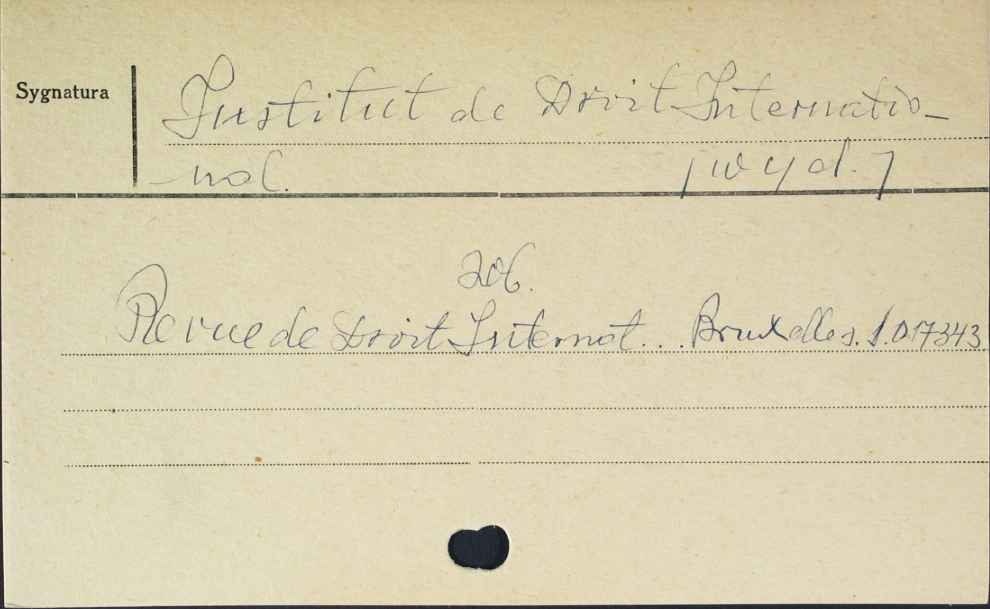 Sygnatura
Institut de Droit Internatio-
-nal. [wyd.]
zob.
Revue de Droit Internat... Bruxelles. S.D.17343